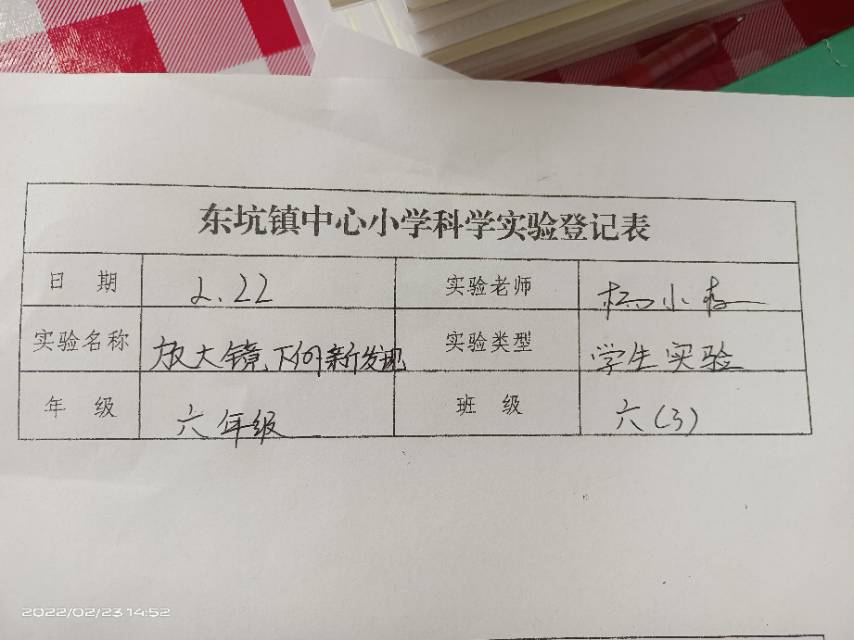 东坑镇中心小学科学实验登记表
日 期 2.22 实验老师 小
实验名称 放大镜下的新发现 实验类型 学生实验
年 级 六年级 班 级 六(3)
2022/02/23 14:52